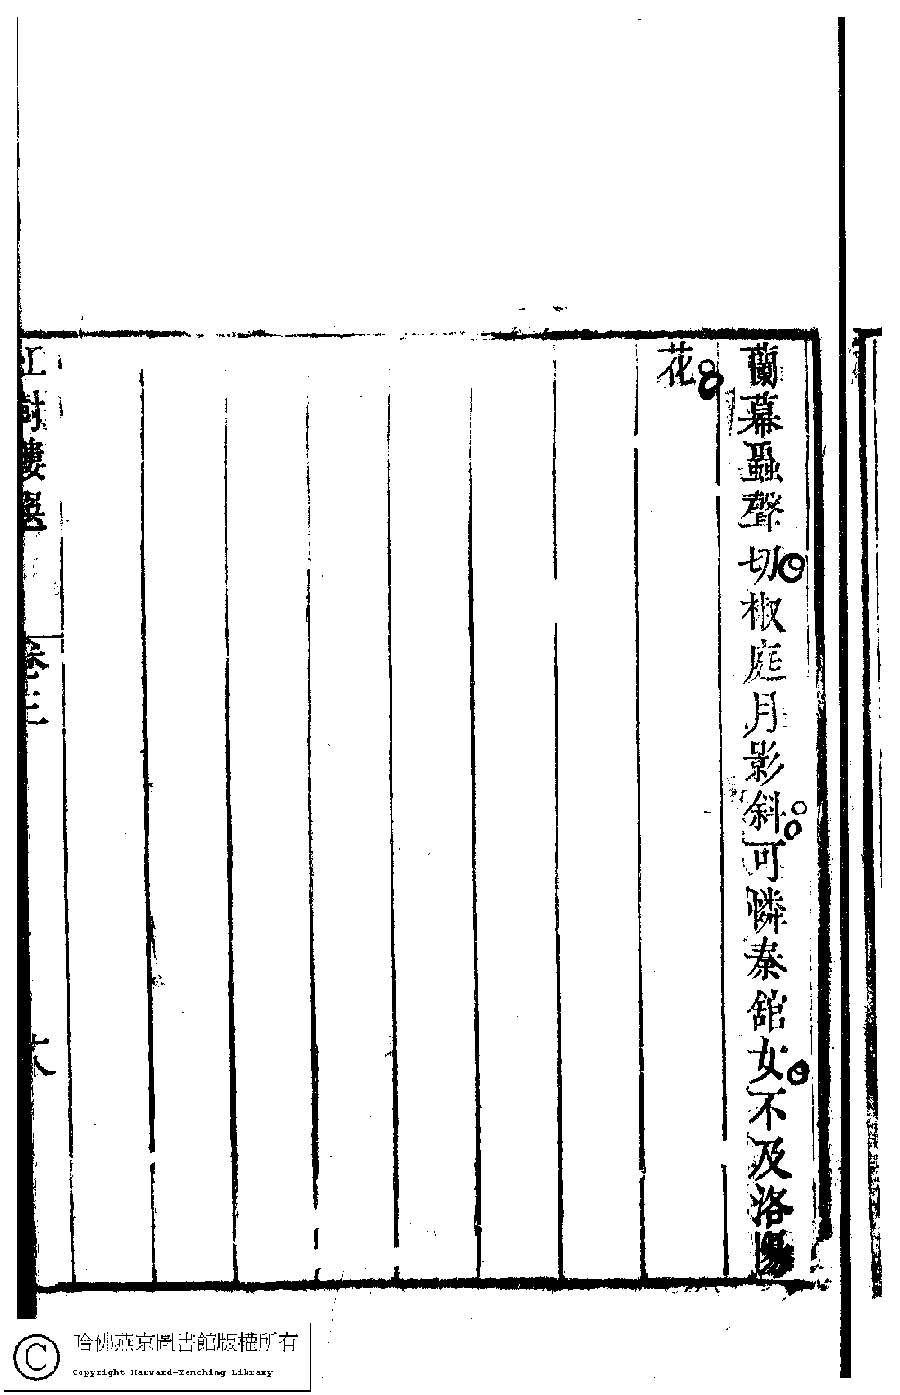 蘭幕蛩聲切椒庭月影斜可憐秦舘女不及洛陽
花
紅樹樓選
卷二
六
哈佛燕京圖書館版權所有
Copyright Harvard-Yenching Library